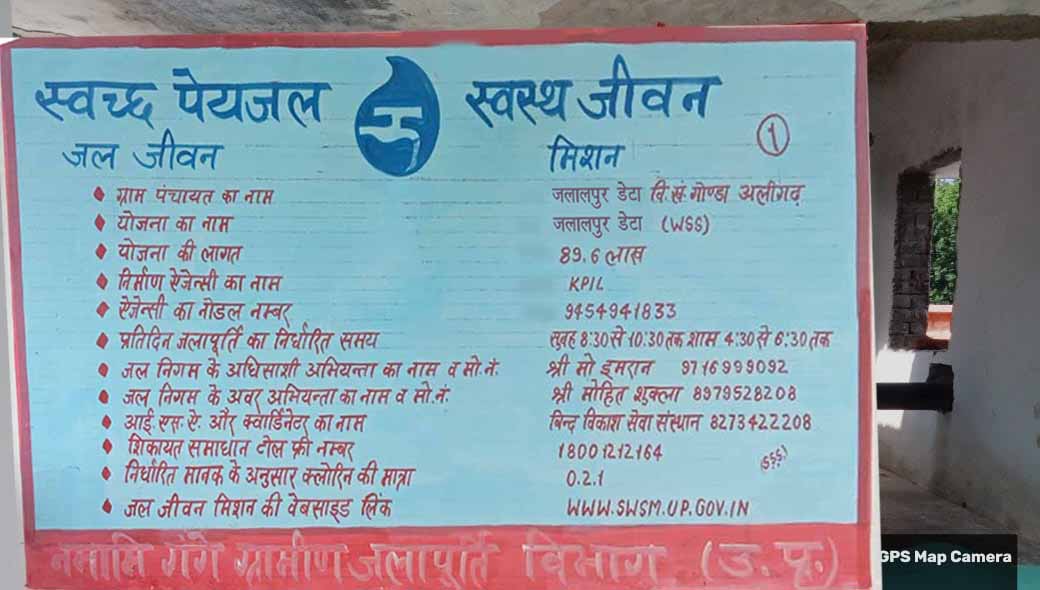 स्वच्छ पेयजल स्वस्थ जीवन
जल जीवन मिशन ①
ग्राम पंचायत का नाम जलालपुर डेटा वि.खं. गोण्डा अलीगढ़
योजना का नाम जलालपुर डेटा (WSS)
योजना की लागत 89.6 लाख
निर्माण ऐजेन्सी का नाम KPIL
ऐजेन्सी का नोडल नम्बर 9454941833
प्रतिदिन जलापूर्ति का निर्धारित समय सुबह 8:30 से 10:30 तक शाम 4:30 से 6:30 तक
जल निगम के अधिसाशी अभियन्ता का नाम व मो.नं. श्री मो इमरान 9716999092
जल निगम के अवर अभियन्ता का नाम व मो.नं. श्री मोहित शुक्ला 8979528208
आई.एस.ऐ. और क्वार्डिनेटर का नाम बिन्द विकाश सेवा संस्थान 8273422208
शिकायत समाधान टोल फ्री नम्बर 18001212164
निर्धारित मानक के अनुसार क्लोरिन की मात्रा 0.2.1
जल जीवन मिशन की वेबसाइड लिंक WWW.SWSM.UP.GOV.IN
नमामि गंगे ग्रामीण जलापूर्ति विभाग (उ.प्र.)
GPS Map Camera